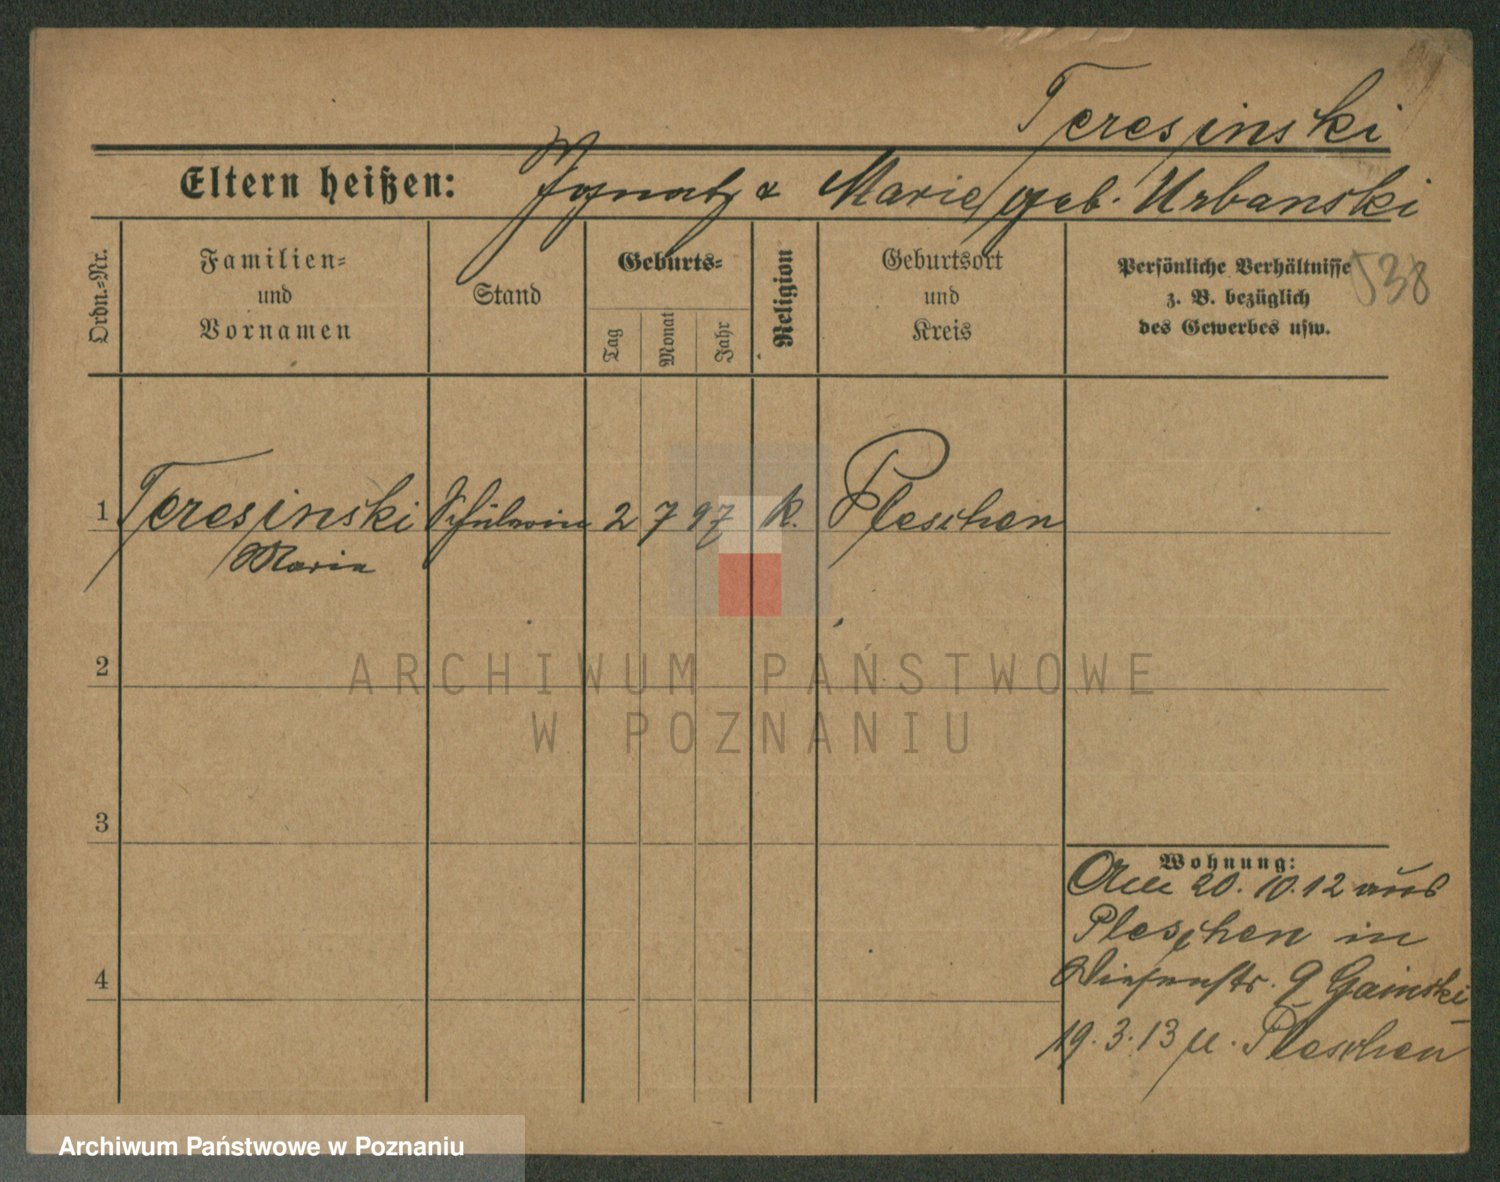 Teresinski
Eltern heißen: Ignatz & Marie geb. Urbanski
538
Ordn.-Nr.
Familien-
und
Vornamen
Stand
Geburts-
Tag
Monat
Jahr
Religion
Geburtsort
und
Kreis
Persönliche Verhältnisse
z. B. bezüglich
des Gewerbes usw.
1 Teresinski Schülerin 2 7 97 k. Pleschen
Maria
2
ARCHIWUM PAŃSTWOWE
W POZNANIU
3
Wohnung:
Am 20. 10. 12 aus
Pleschen in
Wiesenstr. 9 Gainski
4
19. 3. 13 n. Pleschen
Archiwum Państwowe w Poznaniu